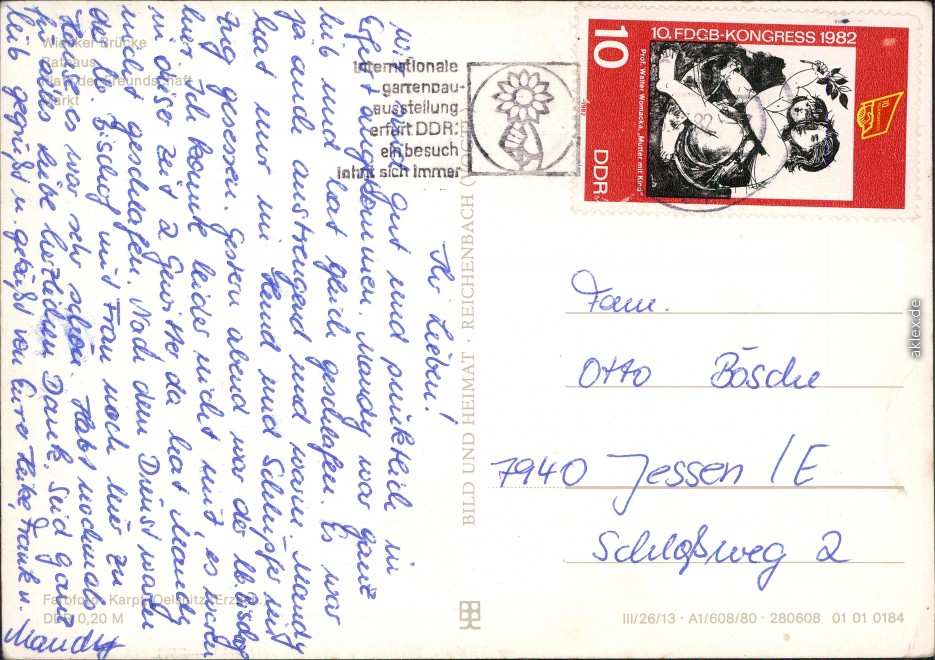 Wiecker Brücke
Rathaus
Platz der Freundschaft
Markt
Ihr Lieben!
Wir sind gut und pünktlich in
Erfurt angekommen. Mandy war ganz
lieb und hat gleich geschlafen. Es war
ja auch anstrengend und warm. Mandy
hat nur im Hemd und Schlüpfer im
Zug gesessen. Gestern abend war der lb. Bischof
hier. Ich konnte leider nicht mit, es
in dieser Zeit 2 Gewitter da hat Mandy
nicht geschlafen. Nach dem Dienst waren
die lb. Bischof mit Frau noch hier zu
es war sehr schön. Habt nochmals
für alles Liebe herzlichen Dank. Seid ganz
lieb gegrüßt u. geküßt von Eure Heike, Frank u.
Mandy
Farbfoto: Karpf, Oelsnitz (Erzgeb.)
DDR 0,20 M
internationale
gartenbau-
ausstellung
erfurt DDR:
ein besuch
lohnt sich immer
BILD UND HEIMAT · REICHENBACH (
10. FDGB-KONGRESS 1982
10
DDR
Prof. Walter Womacka, „Mutter mit Kind“
1982
Fam.
Otto Bösche
7940 Jessen / E
Schloßweg 2
III/26/13 · A1/608/80 · 280608 01 01 0184
aklex.de